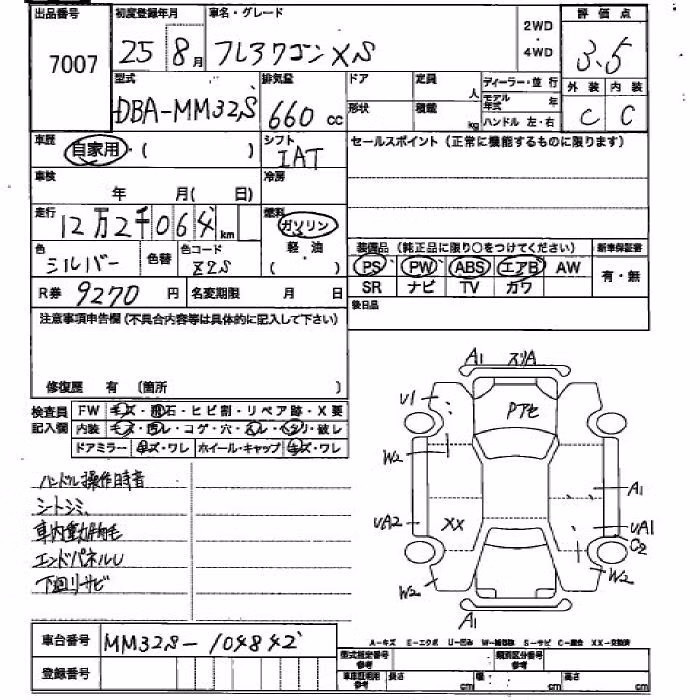 出品番号 初度登録年月 車名・グレード 2WD 評価点
7007 25 8月 フレアワゴン XS ・ 3.5
4WD
型式 排気量 ドア 定員 人 ディーラー・並行 外装 内装
DBA-MM32S 660 cc 形状 積載 kg モデル年式 年 C C
ハンドル 左・右
車歴 自家用・( ) シフト セールスポイント(正常に機能するものに限ります)
IAT
車検 年 月( 日) 冷房
走行 12万2千064 km 燃料 ガソリン
軽・油
( )
色 シルバー 色替 色コード Z2S
装備品(純正品に限り○をつけてください) 新車保証書
PS PW ABS エアB AW 有・無
SR ナビ TV カワ
R券 9270 円 名変期限 月 日
後日品
注意事項申告欄(不具合内容等は具体的に記入して下さい)
修復歴 有 (箇所 )
検査員 FW キズ・飛石・ヒビ割・リペア跡・X要
記入欄 内装 キズ・汚レ・コゲ・穴・スレ・ヘタリ・破レ
ドアミラー キズ・ワレ ホイール・キャップ キズ・ワレ
ハンドル操作時音
シートシミ
車内動物毛
エンドパネルU
下廻リサビ
A1 スリA
U1 Pアセ
W2
A1
UA2 XX UA1
C2
W2 W2
A1
A-キズ E-エクボ U-凹み W-補修跡 S-サビ C-腐食 XX-交換済
車台番号 MM32S-104842
登録番号
型式指定番号 参考 類別区分番号 参考
車庫証明用 参考 長さ cm 幅 cm 高さ cm